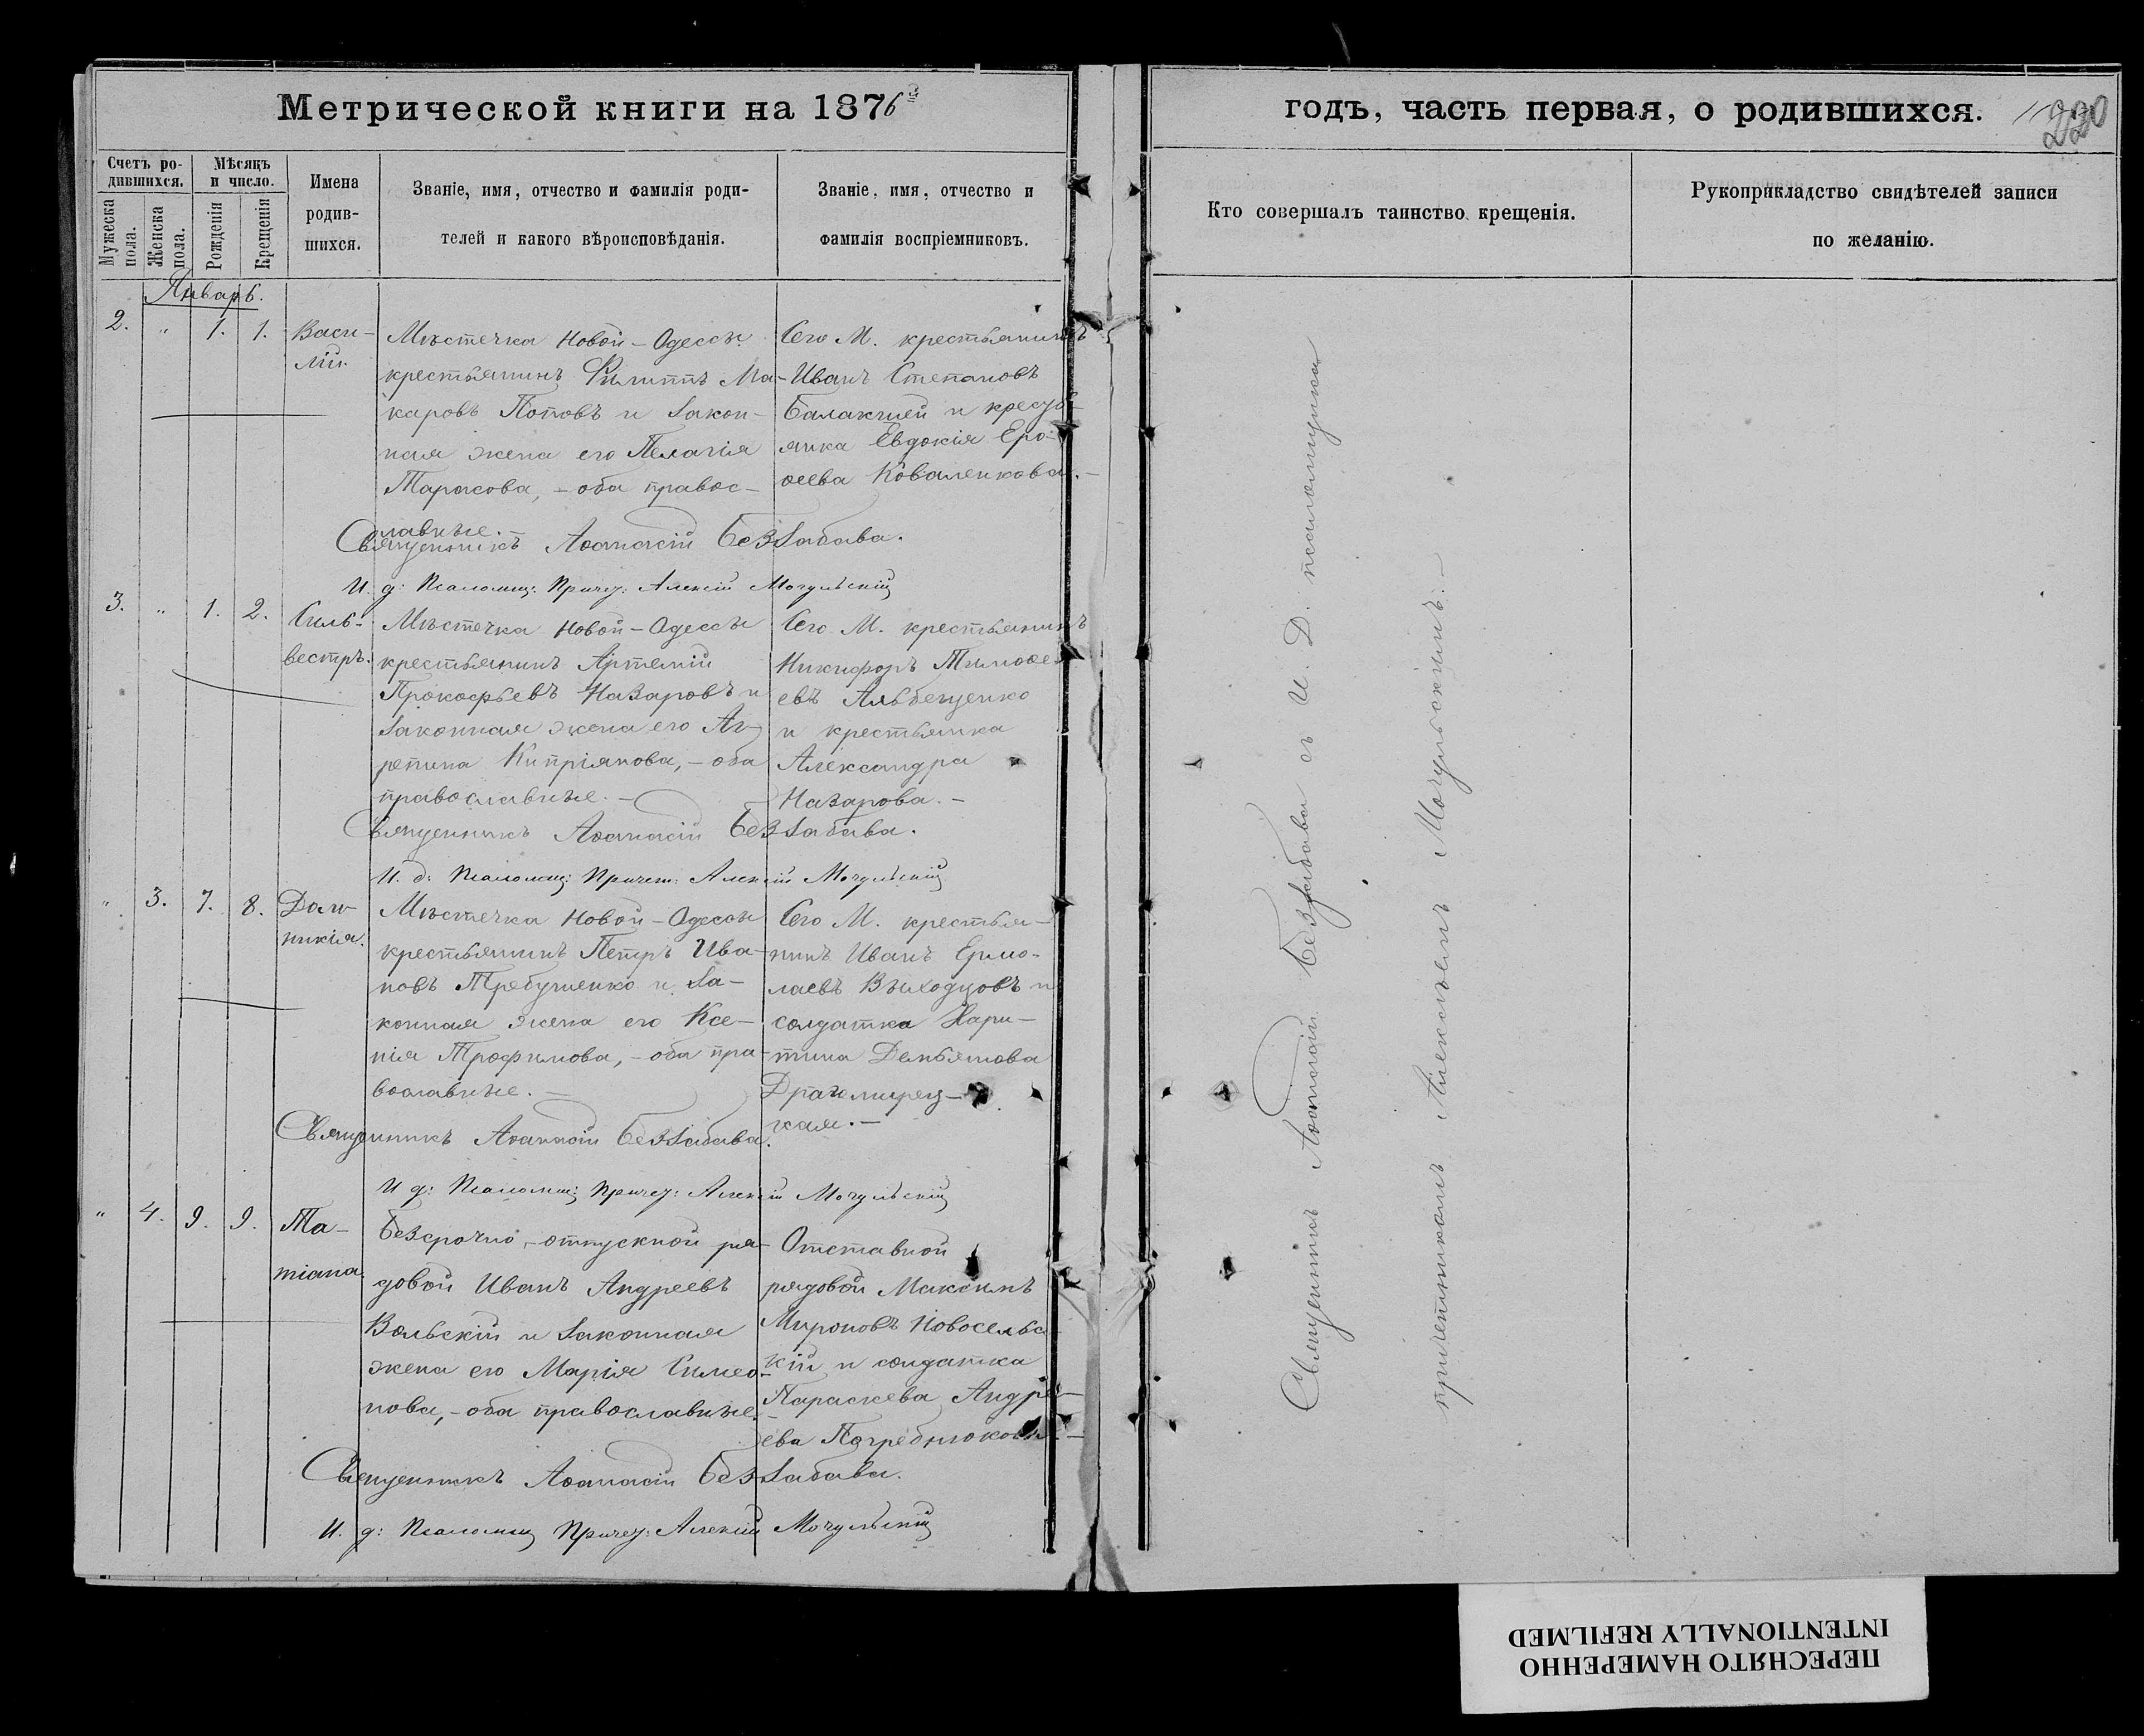 Метрической книги на 1876й
годъ, часть первая, о родившихся.
220
Счетъ ро-
дившихся.
Мужеска пола.
Женска пола.
Мѣсяцъ
и число.
Рожденія
Крещенія
Имена
родив-
шихся.
Званіе, имя, отчество и фамилія роди-
телей и какого вѣроисповѣданія.
Званіе, имя, отчество и
фамилія воспріемниковъ.
Кто совершалъ таинство крещенія.
Рукоприкладство свидѣтелей записи
по желанію.
Январь.
2. " 1. 1.
Васи-
лій.
Мѣстечка Новой-Одессы
крестьянинъ Филиппъ Ма-
каровъ Поповъ и закон-
ная жена его Пелагія
Тарасова, - оба правос-
лавные. -
Сего М. крестьянинъ
Иванъ Степановъ
Балакчіей и кресть-
янка Евдокія Еро-
ѳеева Коваленкова. -
Священникъ Аѳанасій Беззабава.
И. д: Псаломщ: Причет: Алексій Мочульскій
3. " 1. 2.
Силь-
вестръ.
Мѣстечка Новой-Одессы
крестьянинъ Артемій
Прокофьевъ Назаровъ и
законная жена его Аг-
репина Кипріянова, - оба
православные. -
Сего М. крестьянинъ
Никифоръ Тимоѳе-
евъ
и крестьянка
Александра
Назарова. -
Священникъ Аѳанасій Беззабава.
И. д: Псаломщ: Причет: Алексій Мочульскій
" 3. 7. 8.
Дом-
никія.
Мѣстечка Новой-Одессы
крестьянинъ Петръ Ива-
новъ Требушенко и за-
конная жена его Ксе-
нія Трофимова, - оба пра-
вославные. -
Сего М. крестья-
нинъ Иванъ Ермо-
лаевъ Выходцовъ и
солдатка Хари-
тина Демьянова
Драгомирец-
кая. -
Священникъ Аѳанасій Беззабава.
И д: Псаломщ: Причет: Алексій Мочульскій
" 4. 9. 9.
Та-
тіана
Безсрочно-отпускной ря-
довой Иванъ Андреевъ
Вольскій и законная
жена его Марія Симео-
нова, - оба православные. -
Отставной
рядовой Максимъ
Мироновъ Новосельс-
кій и солдатка
Параскева Андре-
ева Погребнюкова -
Священникъ Аѳанасій Беззабава.
И. д: Псаломщ Причет: Алексій Мочульскій
Священникъ Аѳанасій Беззабава съ И. Д. псаломщика
причетникомъ Алексѣемъ Мочульскимъ. -
ПЕРЕСНЯТО НАМЕРЕННО
INTENTIONALLY REFILMED